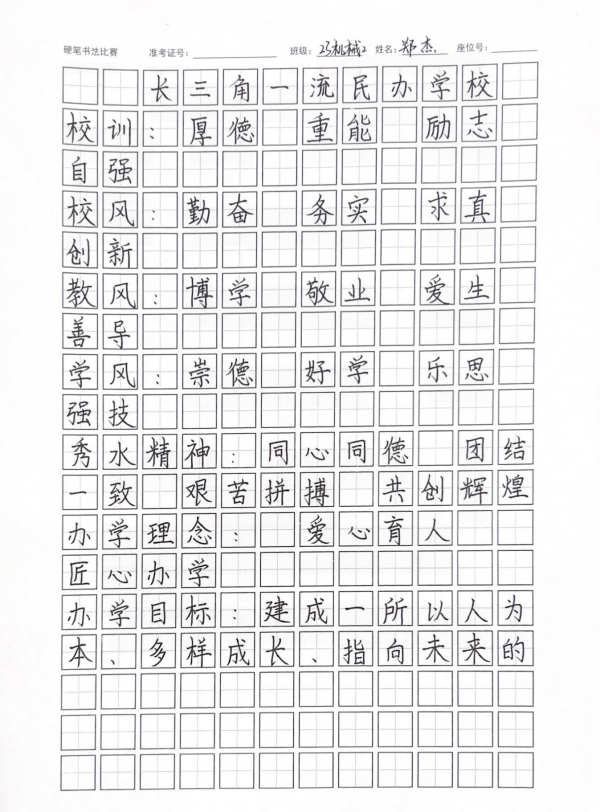 硬笔书法比赛 准考证号: 班级: 23机械2 姓名: 郑杰 座位号:
长三角一流民办学校
校训：厚德 重能 励志
自强
校风：勤奋 务实 求真
创新
教风：博学 敬业 爱生
善导
学风：崇德 好学 乐思
强技
秀水精神：同心同德 团结
一致 艰苦拼搏 共创辉煌
办学理念： 爱心育人
匠心办学
办学目标：建成一所以人为
本、多样成长、指向未来的